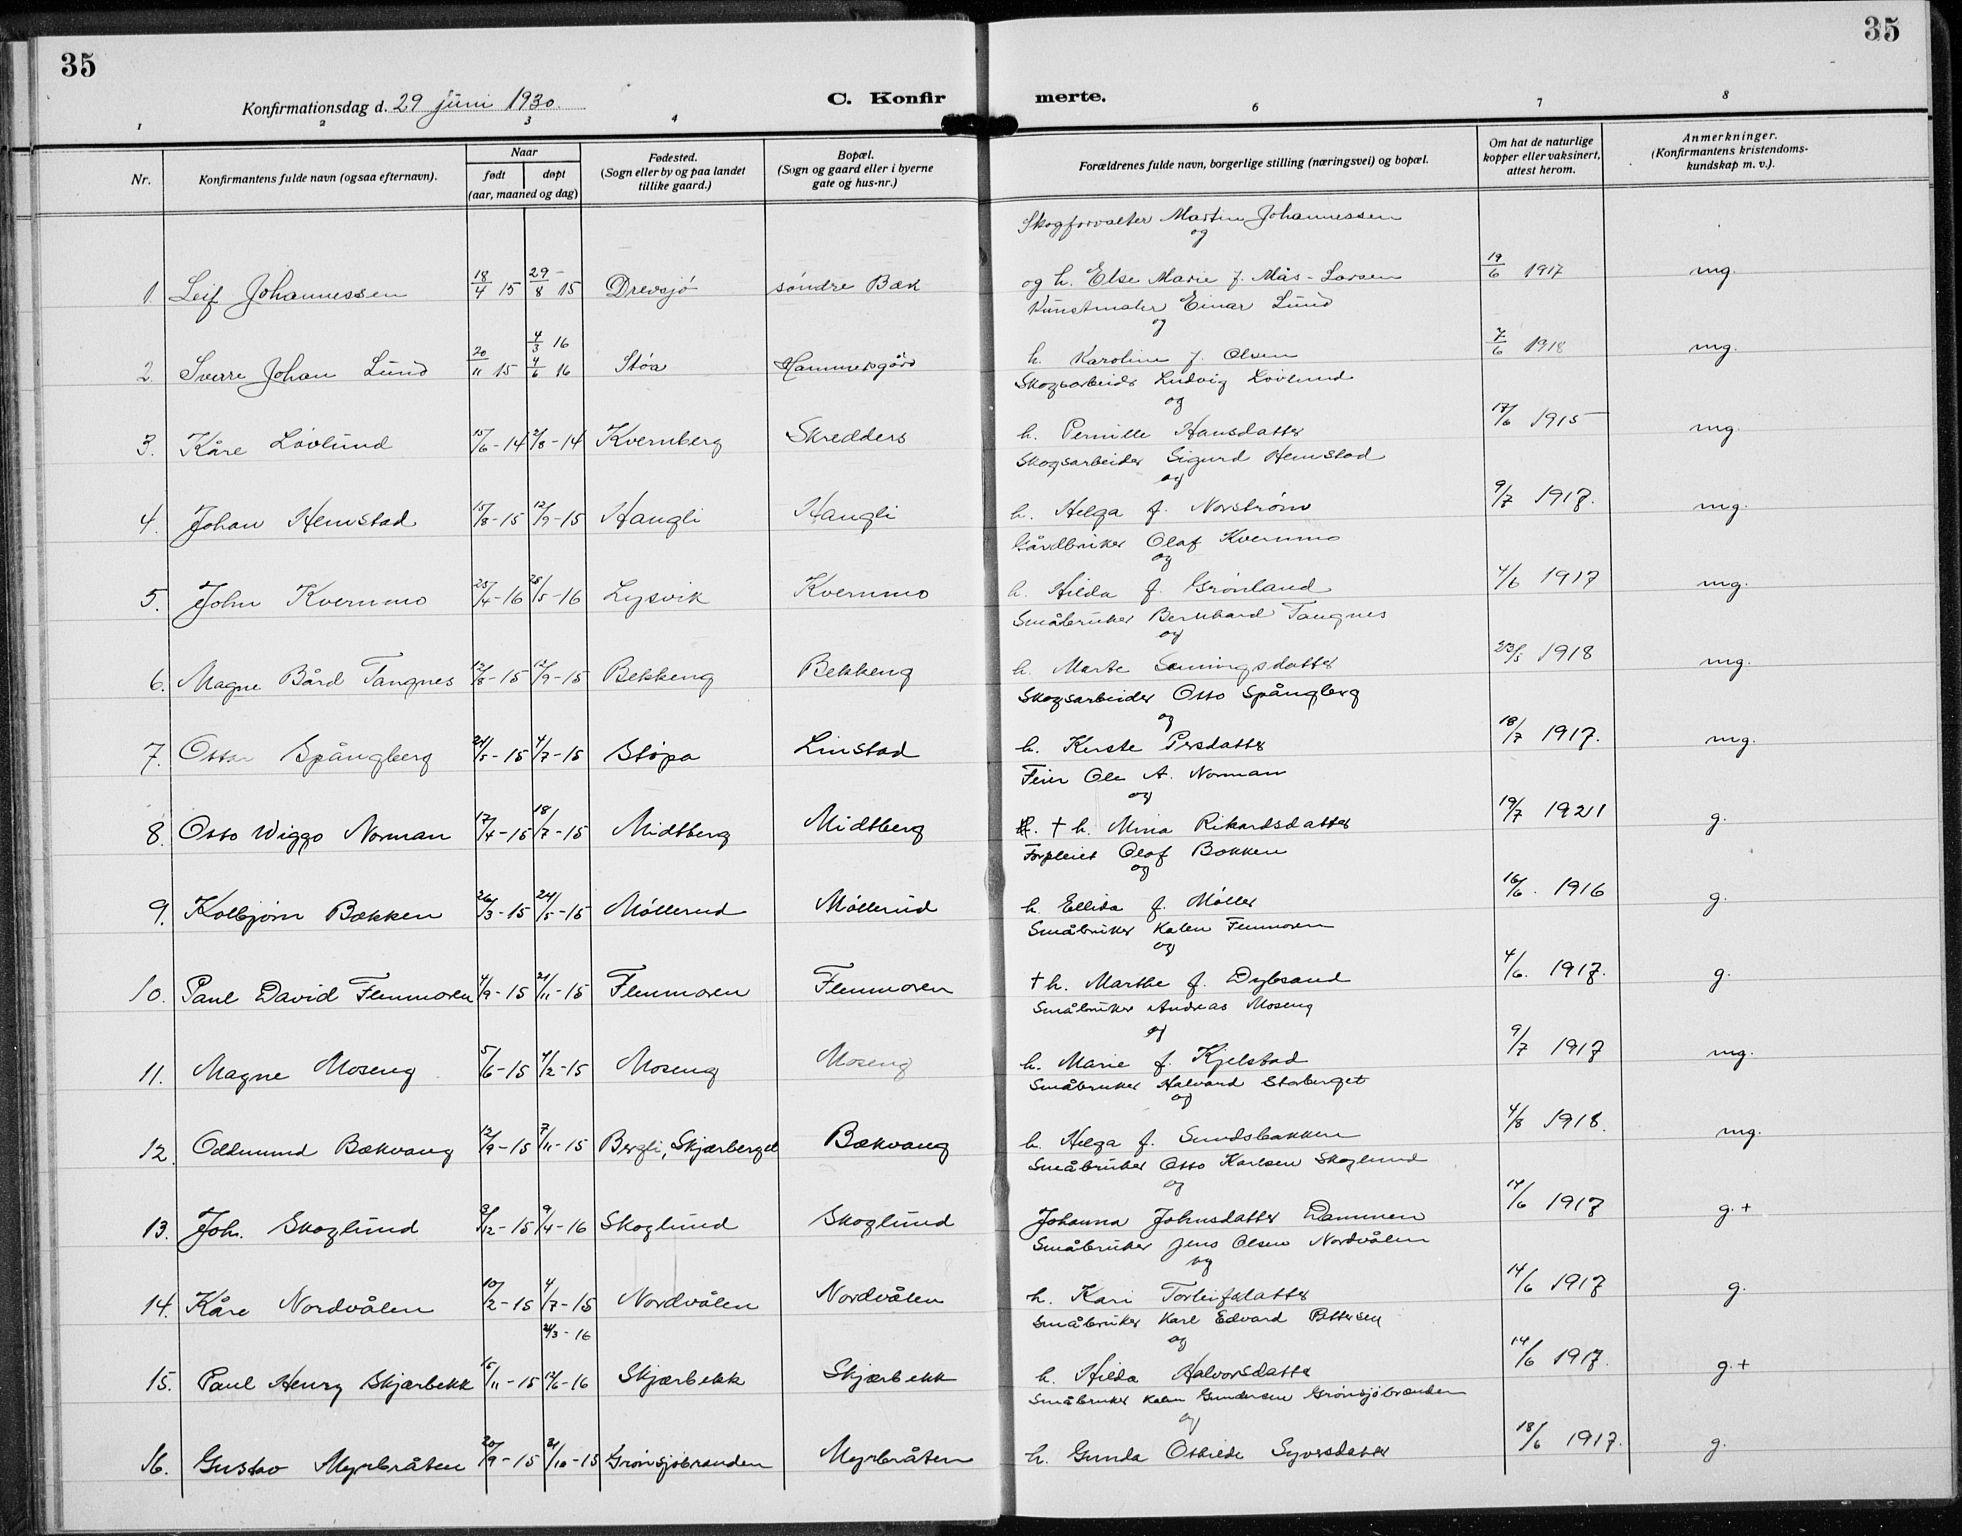 35
35
Konfirmationsdag d. 29 juni 1930.
C. Konfir
merte.
1 2 3 4 6 7 8
Nr.
Konfirmantens fulde navn (ogsaa efternavn).
Naar
født døpt
(aar, maaned og dag)
Fødested.
(Sogn eller by og paa landet
tillike gaard.)
Bopæl.
(Sogn og gaard eller i byerne
gate og hus-nr.)
Forældrenes fulde navn, borgerlige stilling (næringsvei) og bopæl.
Om hat de naturlige
kopper eller vaksinert,
attest herom.
Anmerkninger.
(Konfirmantens kristendoms-
kundskap m. v.).
Skogforvalter Martin Johannessen
og
1. Leif Johannessen 18/4 15 29/8 15 Drevsjø søndre Bæk og h. Else Marie f. Mås-Larsen 19/6 1917 mg.
Kunstmaler Einar Lund
og
4/3 16
2. Sverre Johan Lund 20/11 15 4/6 16 Støa Hammersgård h. Karoline f. Olsen 7/6 1918 mg.
Skogsarbeider Ludvig Løvlund
og
3. Kåre Løvlund 15/6-14 2/8-14 Kvernberg Skredders h. Pernille Hansdatter 17/6 1915 mg.
Skogsarbeider Sigurd Hemstad
og
4. Johan Hemstad 15/8-15 12/9-15 Haugli Haugli h. Helga f. Norstrøm 9/7 1917. mg.
Gårdbruker Olaf Kvernmo
og
5. John Kvernmo 25/4-16 28/5-16 Lysvik Kvernmo h. Hilda f. Grønland 4/6 1917 mg.
Småbruker Bernhard Tangnes
og
6. Magne Bård Tangnes 12/8-15 12/9-15 Bekkeng Bekkeng h. Marte 23/5 1918 mg.
Skogsarbeider Otto Spångberg
og
7. Ottar Spångberg 24/5-15 4/7-15 Støpa Linstad h. Kerste Persdatter 18/7 1917. mg.
Feier Ole A. Norman
og
8. Otto Wiggo Norman 17/4-15 18/7-15 Midtberg Midtberg † h. Mina Rikardsdatter 19/7 1921 g.
Forpleiet Olaf Bakken
og
9. Kolbjørn Bækken 26/3-15 24/5-15 Møllerud Møllerud h. Ellida f. Møller 16/6. 1916 g.
Småbruker Kalen Flenmoren
og
10. Paul David Flenmoren 4/9-15 21/11-15 Flenmoren Flenmoren † h. Marthe f. Dybsand 4/6. 1917. g.
Småbruker Andreas Moseng
og
11. Magne Moseng 5/6-15 4/2-15 Moseng Moseng h. Marie f. Kjelstad 9/7 1917 mg.
Småbruker Halvard Storberget
og
12. Oddmund Bækvang 12/9-15 7/11-15 Bergli, Skjærberget Bækvang h. Helga f. Sundsbakken 4/8 1918. mg.
Småbruker Otto Karlsen Skoglund
og
13. Joh. Skoglund 3/12-15 9/4-16 Skoglund Skoglund Johanna Johnsdatter Dammen 14/6 1917 g.+
Småbruker Jens Olsen Nordvålen
og
14. Kåre Nordvålen 10/2-15 4/7-15 Nordvålen Nordvålen h. Kari Torleifsdatter 14/6 1917 g.
Småbruker Karl Edvard Pettersen
og
21/3-16
15. Paul Henry Skjærbekk 15/11-15 12/6-16 Skjærbekk Skjærbekk h. Hilda Halvorsdatter 14/6 1917. g.+
Småbruker Kalen Gundersen Grønsjøbranden
og
16. Gustav Myrbråten 20/9-15 31/10-15 Grønsjøbranden Myrbråten h. Gunda Othilde Syversdatter 18/6 1917. g.